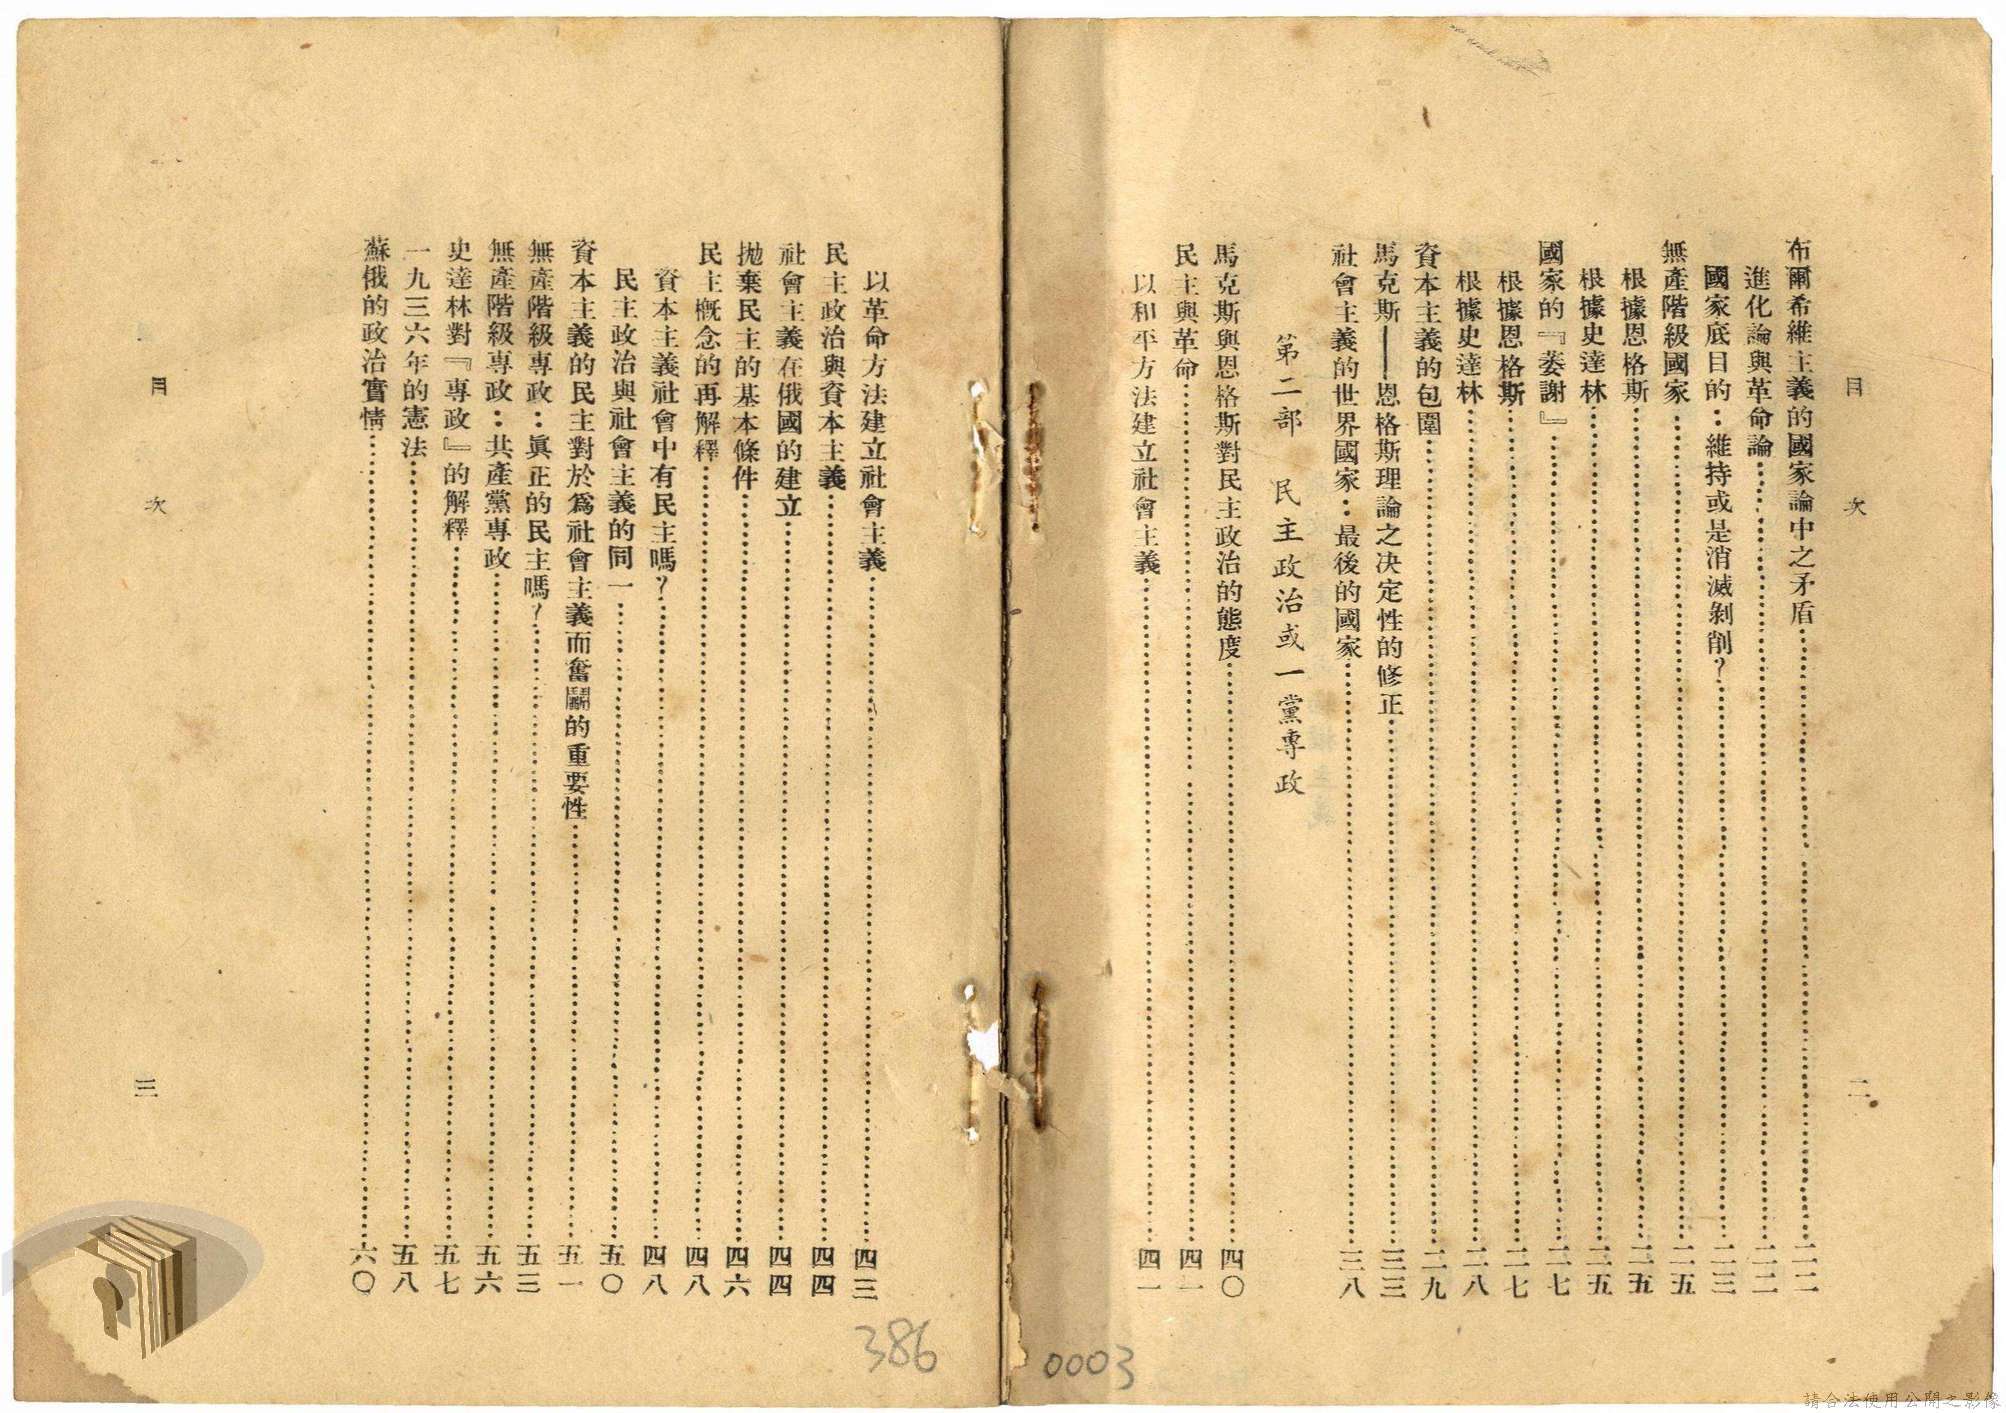 目次 二
布爾希維主義的國家論中之矛盾……二二
進化論與革命論……二二
國家底目的：維持或是消滅剝削？……二三
無產階級國家……二五
根據恩格斯……二五
根據史達林……二五
國家的『萎謝』……二七
根據恩格斯……二七
根據史達林……二八
資本主義的包圍……二九
馬克斯——恩格斯理論之决定性的修正……三三
社會主義的世界國家：最後的國家……三八
第二部 民主政治或一黨專政
馬克斯與恩格斯對民主政治的態度……四〇
民主與革命……四一
以和平方法建立社會主義……四一
以革命方法建立社會主義……四三
民主政治與資本主義……四四
社會主義在俄國的建立……四四
拋棄民主的基本條件……四六
民主槪念的再解釋……四八
資本主義社會中有民主嗎？……四八
民主政治與社會主義的同一……五〇
資本主義的民主對於爲社會主義而奮鬭的重要性……五一
無產階級專政：眞正的民主嗎？……五三
無產階級專政：共產黨專政……五六
史達林對『專政』的解釋……五七
一九三六年的憲法……五八
蘇俄的政治實情……六〇
目次 三
386
0003
請合法使用公開之影像